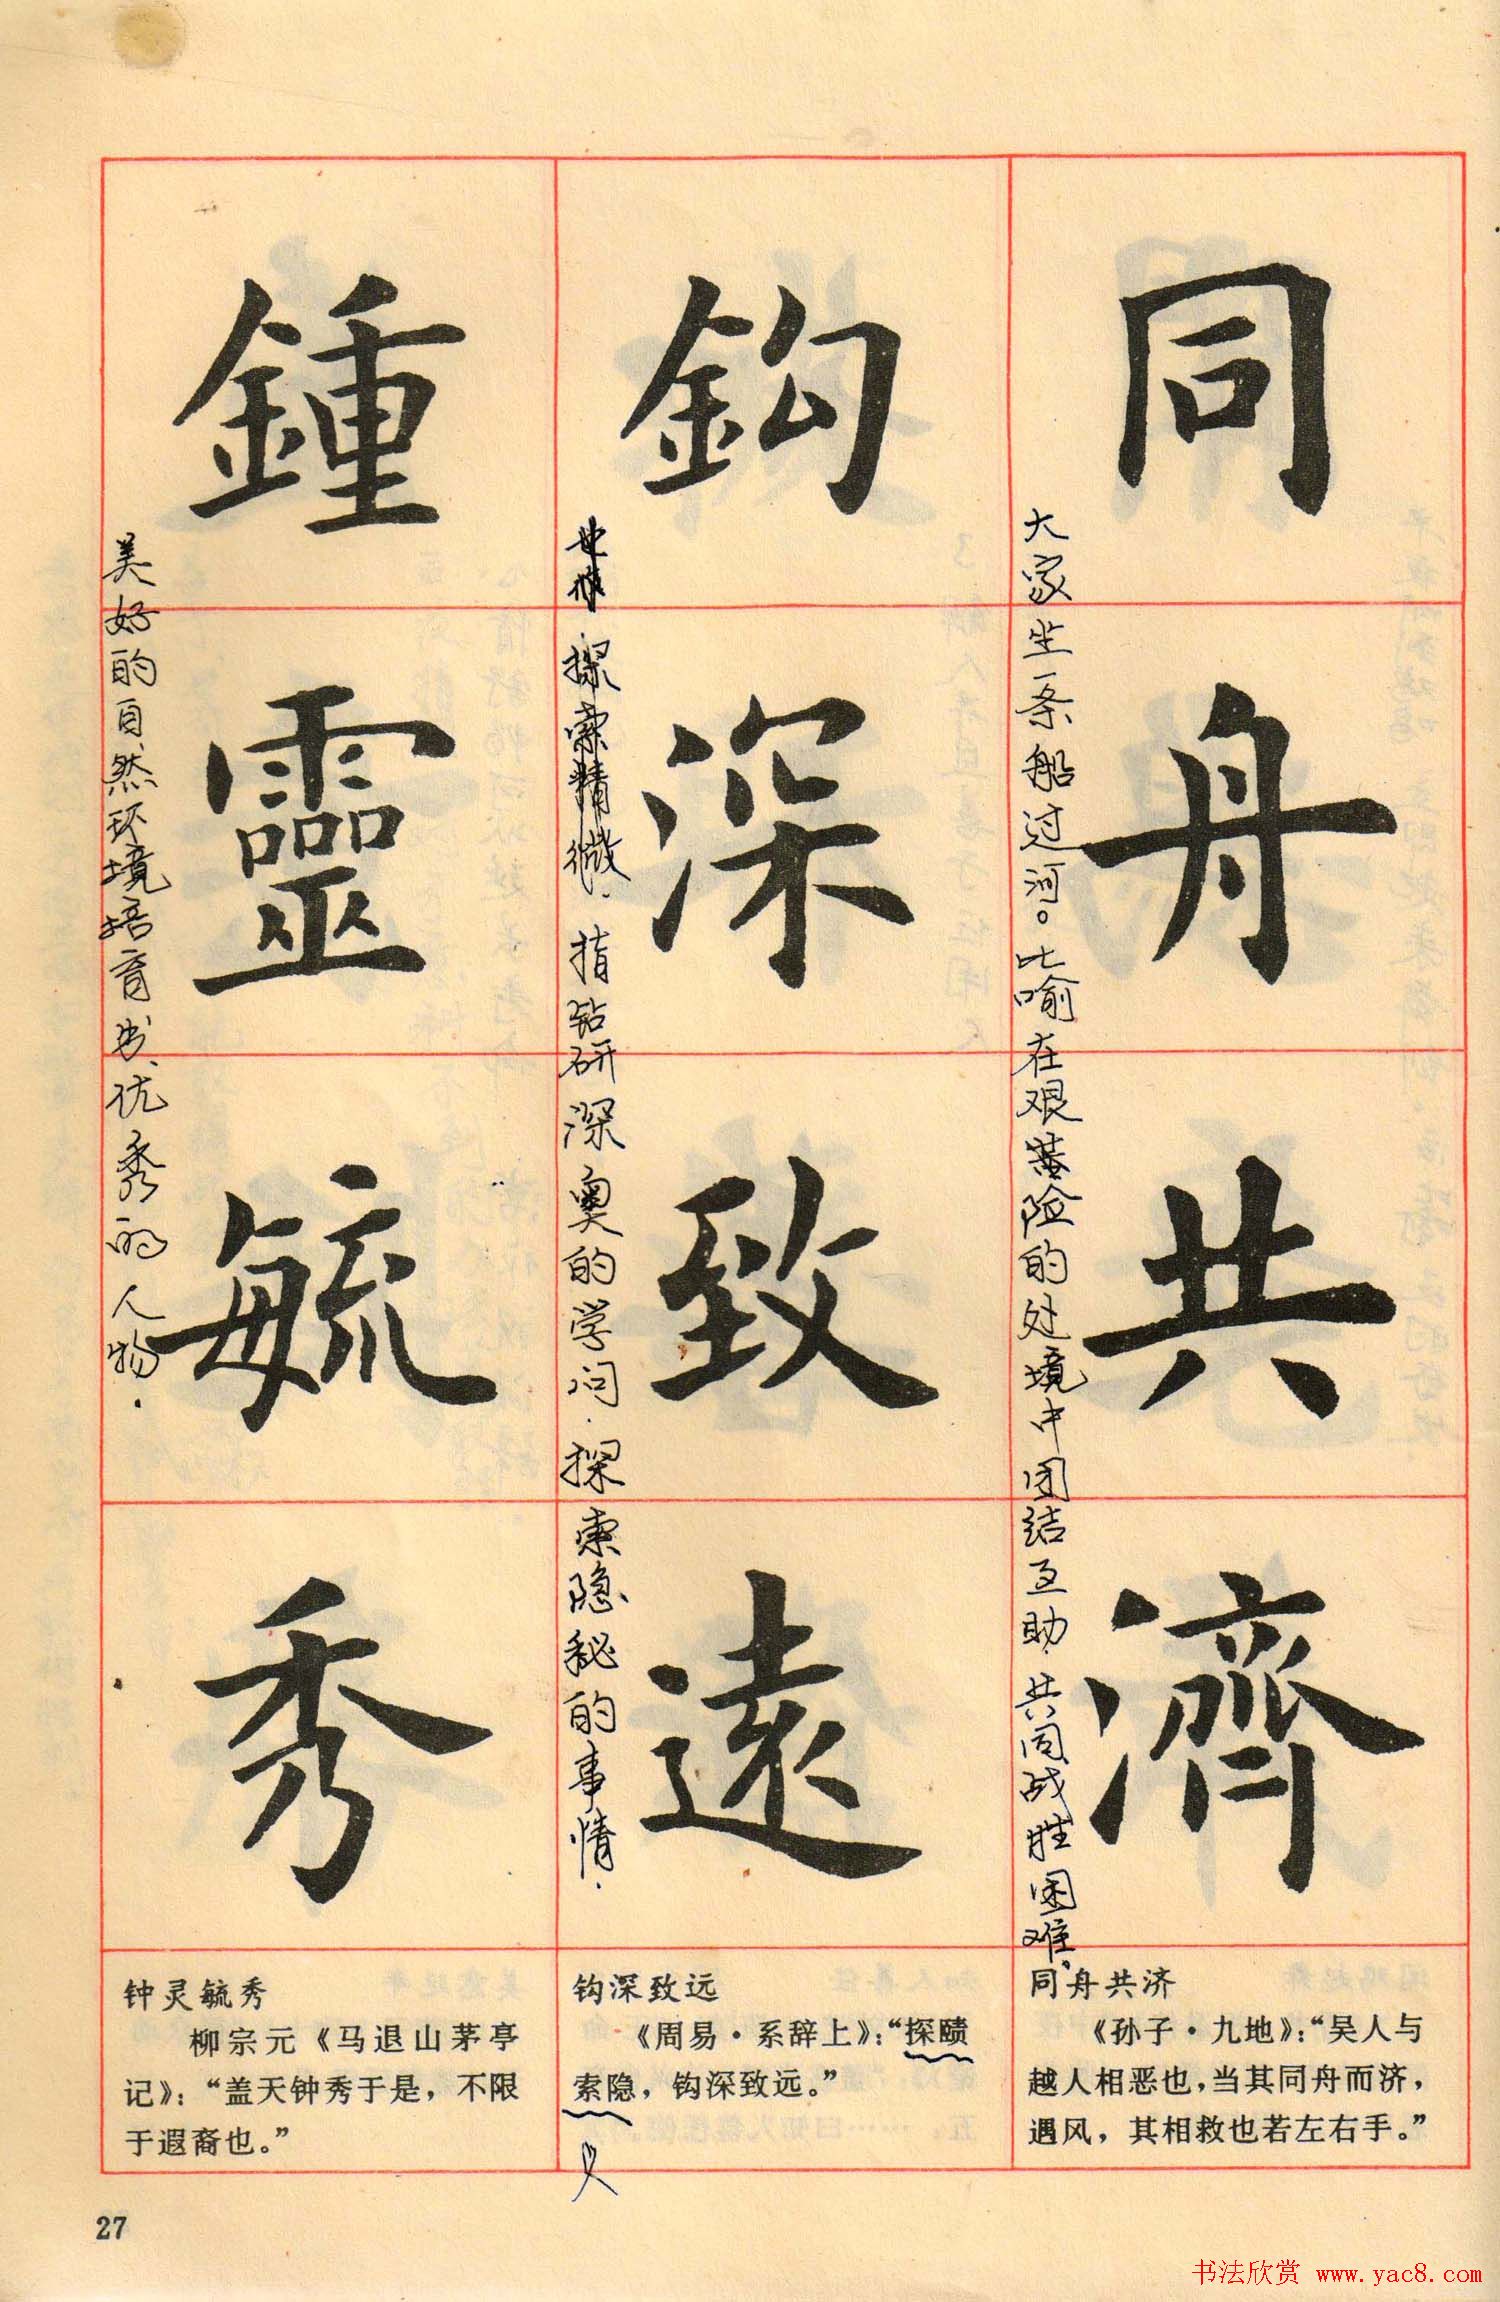 同舟共濟
大家坐一条船过河。比喻在艰险的处境中团结互助,共同战胜困难。
鈎深致遠
探索精微.指钻研深奥的学问.探索隐秘的事情.
鍾靈毓秀
美好的自然环境培育出优秀的人物.
同舟共济
《孙子·九地》:“吴人与
越人相恶也,当其同舟而济,
遇风,其相救也若左右手。”
钩深致远
《周易·系辞上》:“探赜
索隐,钩深致远。”
钟灵毓秀
柳宗元《马退山茅亭
记》:“盖天钟秀于是,不限
于遐裔也。”
27
书法欣赏 www.yac8.com